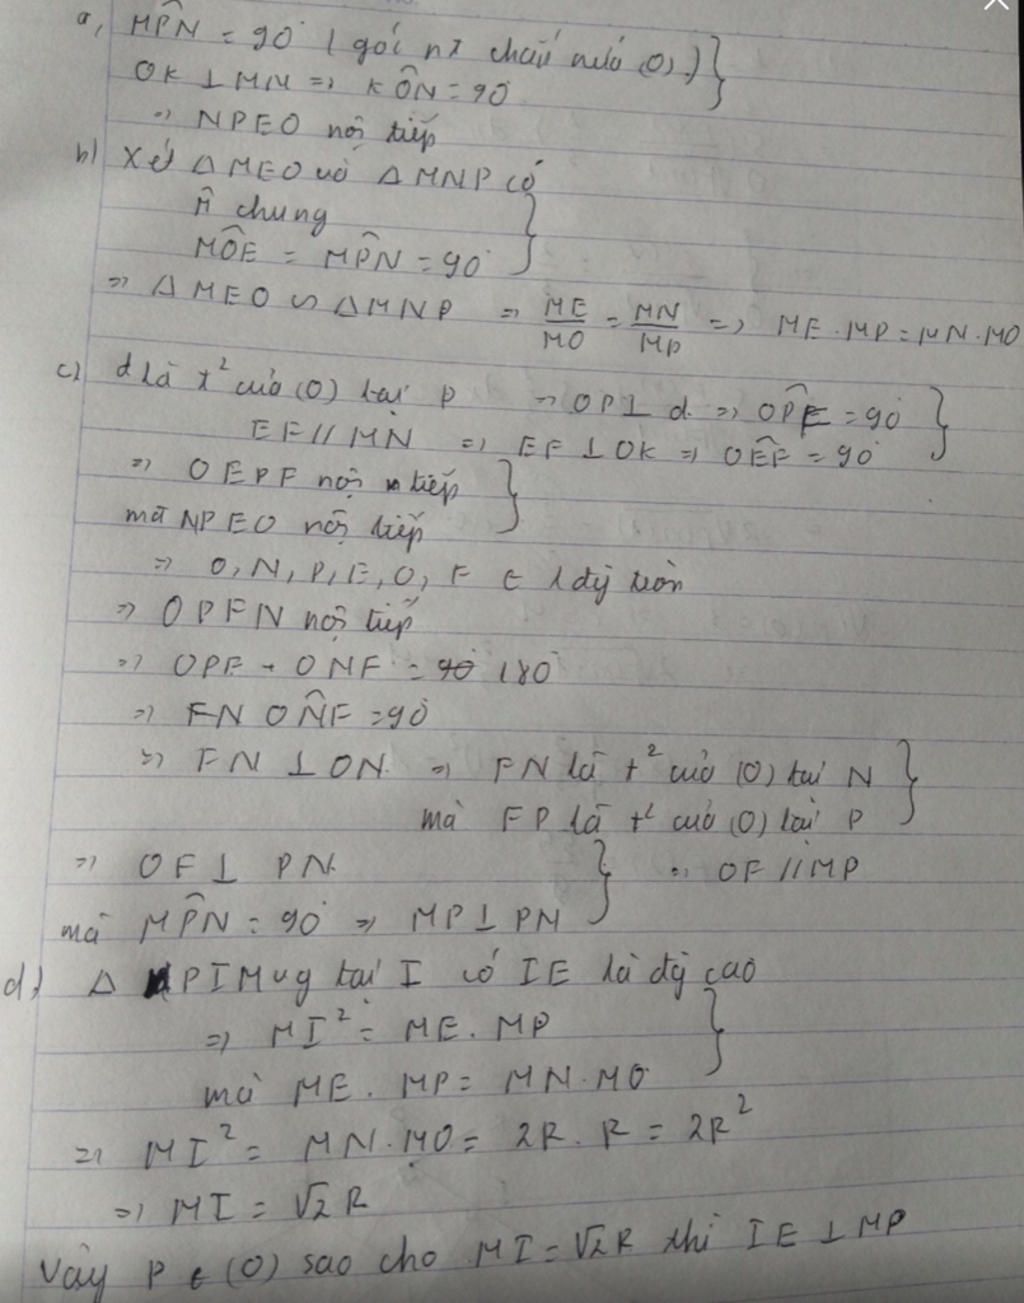 a, MP̂N = 90° (góc nt chắn nửa (O).) }
OK ⊥ MN => KÔN = 90°
=> NPEO nội tiếp
b) Xét △MEO và △MNP có
M̂ chung
MÔE = MP̂N = 90° }
=> △MEO ∽ △MNP => ME/MO = MN/MP => ME.MP = MN.MO
c) d là t² của (O) tại P => OP ⊥ d. => OP̂F = 90° }
EF // MN => EF ⊥ OK => OÊF = 90°
=> OEPF nội tiếp }
mà NPEO nội tiếp
=> O, N, P, E, O, F ∈ 1 đg tròn
=> OPFN nội tiếp
=> OPF + ONF = 90° 180°
=> FN ON̂F = 90°
=> FN ⊥ ON. => FN là t² của (O) tại N }
mà FP là t² của (O) tại P
=> OF ⊥ PN. } => OF // MP
mà MP̂N = 90° => MP ⊥ PN
d, △ PIM vg tại I có IE là đg cao
=> MI² = ME. MP }
mà ME. MP = MN.MO
=> MI² = MN.MO = 2R. R = 2R²
=> MI = √2 R
Vậy P ∈ (O) sao cho MI = √2R thì IE ⊥ MP